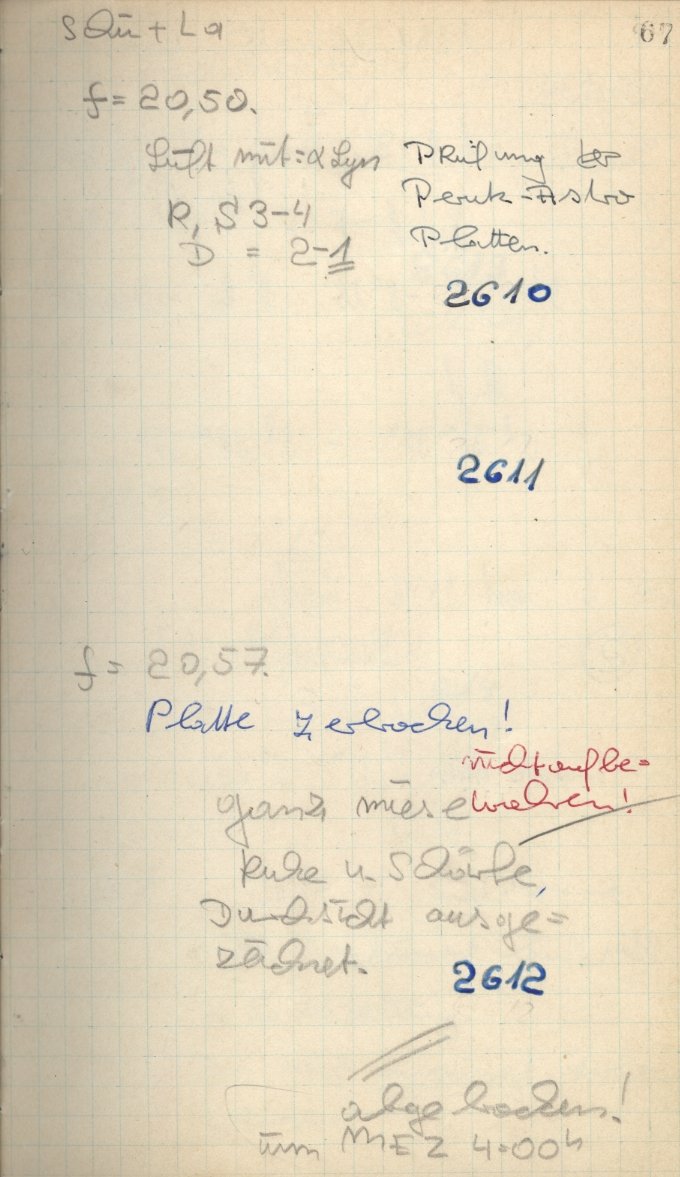 Schü + La
67
f = 20,50.
Luft mit: α Lyr
R, S 3-4
D = 2-1
Prüfung der
Perutz-Astro
Platten.
2610
2611
f = 20,57.
Platte zerbrochen!
nicht aufbe=
wahren!
ganz miese
Ruhe u. Schärfe,
Durchsicht ausge=
zeichnet.
2612
abgebrochen!
um MEZ 4:00h